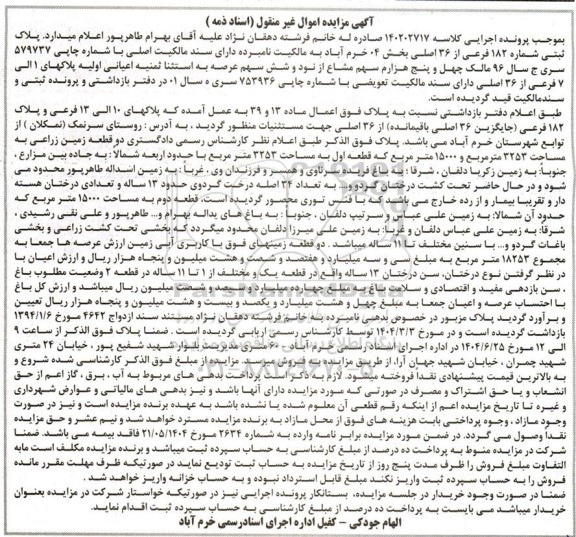 آگهی مزایده اموال غیر منقول (اسناد ذمه )
بموجب پرونده اجرایی کلاسه ۱۴۰۲۰۲۷۱۷ صادره له خانم فرشته دهقان نژاد علیه آقای بهرام طاهرپور اعلام میدارد. پلاک
ثبتی شماره ۱۸۲ فرعی از ۳۶ اصلی بخش ۰۴ خرم آباد به مالکیت نامبرده دارای سند مالکیت اصلی با شماره چاپی ۵۷۹۷۳۷
سری ج سال ۹۶ مالک چهل و پنج هزارم سهم مشاع از نود و شش سهم عرصه به استثنا ثمنیه اعیانی اولیه پلاکهای ۱ الی
۷ فرعی از ۳۶ اصلی دارای سند مالکیت تعویضی با شماره چاپی ۷۵۳۹۳۶ سری ه سال ۰۱ در دفتر بازداشتی و پرونده ثبتی و
سندمالکیت قید گردیده است.
طبق اعلام دفتر بازداشتی نسبت به پلاک فوق اعمال ماده ۱۳ و ۳۹ به عمل آمده که پلاکهای ۱۰ الی ۱۳ فرعی و پلاک
۱۸۲ فرعی (جایگزین ۳۶ اصلی باقیمانده) از ۳۶ اصلی جهت مستثنیات منظور گردید ، به آدرس : روستای سرنمک (نمکلان ) از
توابع شهرستان خرم آباد می باشد. پلاک فوق الذکر طبق اعلام نظر کارشناس رسمی دادگستری دو قطعه زمین زراعی به
مساحت ۳۲۵۳ مترمربع و ۱۵۰۰۰ متر مربع که قطعه اول به مساحت ۳۲۵۳ متر مربع با حدود اربعه شمالاً : به جاده بین مزارع ،
جنوباً: به زمین زکریا دلفان ، شرقا : به باغ آقایان برتاوی و میر و فرزندان وی ، غرباً : به زمین اسداله طاهرپور محدود می
شود و در حال حاضر تحت کشت درختان گردو و ... به تعداد ۳۴ اصله درخت گردوی حدود ۱۳ ساله و تعدادی درختان هسته
دار و تقریبا بیمار و از رده خارج می باشد که با فنس توری محصور گردیده است. قطعه دوم به مساحت ۱۵۰۰۰ متر مربع که
حدود آن شمالا: به زمین علی عباس و سرتیپ دلفان ، جنوبا : به باغ های یداله بهرام و... طاهرپور و علی نقی رشیدی ،
شرقا: به زمین علی عباس دلفان و غربا: به زمین علی میرزا دلفان محدود میگردد که بخشی تحت کشت زراعی و بخشی
باغات گردو و... با سنین مختلف تا ۱۱ ساله میباشد . دو قطعه زمینهای فوق با کاربری آبی زمین ارزش عرصه ها جمعا به
مجموع ۱۸۲۵۳ متر مربع به مبلغ سی و سه میلیارد و هفتصد و شصت و هشت میلیون و پنجاه هزار ریال و ارزش اعیان با
در نظر گرفتن نوع درختان، سن درختان ۱۳ ساله واقع در قطعه یک و مختلف از ۱ تا ۱۱ ساله در قطعه ۲ وضعیت مطلوب باغ
، سن بازدهی مفید و اقتصادی و سلامت باغ به مبلغ چهارده میلیارد و سیصد و شصت میلیون ریال میباشد و ارزش کل باغ
با احتساب عرصه و اعیان جمعا به مبلغ چهل و هشت میلیارد و یکصد و بیست و هشت میلیون و پنجاه هزار ریال تعیین
و برآورد گردید پلاک مزبور در خصوص بدهی نامبرده به خانم فرشته دهقان نژاد به مستند سند ازدواج ۴۶۴۲ مورخ ۱۳۹۴/۱/۶
بازداشت گردیده است و در مورخ ۱۴۰۴/۳/۳ توسط کارشناس رسمی ارزیابی گردیده است . ضمنا پلاک فوق الذکر از ساعت ۹
الی ۱۲ مورخ ۱۴۰۴/۶/۲۵ در اداره اجرای اسناد رسمی خرم آباد ، ۶۰ متری معلم ، بلوار شهید شفیع پور ، خیابان ۲۴ متری
شهید چمران ، خیابان شهید جهان آرا، از طریق مزایده به فروش می رسد. مزایده از مبلغ فوق الذکر کارشناسی شده شروع و
به بالاترین قیمت پیشنهادی نقدا فروخته میشود. لازم به ذکر است پرداخت بدهی های مربوط به آب ، برق ، گاز اعم از حق
انشعاب و یا حق اشتراک و مصرف در صورتی که مورد مزایده دارای آنها باشد و نیز بدهی های مالیاتی و عوارض شهرداری
و غیره تا تاریخ مزایده اعم از اینکه رقم قطعی آن معلوم شده یا نشده باشد به عهده برنده مزایده است و نیز در صورت
وجود مازاد ، وجوه پرداختی بابت هزینه های فوق از محل مازاد به برنده مزایده مسترد خواهد شد و نیم عشر و حق مزایده
نقدا وصول می گردد. در ضمن مورد مزایده برابر نامه وارده به شماره ۲۶۳۴ مورخ ۲۱/۰۵/۱۴۰۴ فاقد بیمه می باشد. ضمنا
شرکت در مزایده منوط به پرداخت ده درصد از مبلغ کارشناسی به حساب سپرده ثبت میباشد و برنده مزایده مکلف است مابه
التفاوت مبلغ فروش را ظرف مدت پنج روز از تاریخ مزایده به حساب ثبت تودیع نماید در صورتیکه ظرف مهلت مقرر مانده
فروش را به حساب سپرده ثبت واریز نکند مبلغ قابل استرداد نبوده و به حساب خزانه واریز خواهد شد .
ضمنا در صورت وجود خریدار در جلسه مزایده، بستانکار پرونده اجرایی نیز در صورتیکه خواستار شرکت در مزایده بعنوان
خریدار میباشد می بایست به پرداخت ده درصد از مبلغ کارشناسی به حساب سپرده ثبت اقدام نماید.
الهام جودکی – کفیل اداره اجرای اسنادرسمی خرم آباد